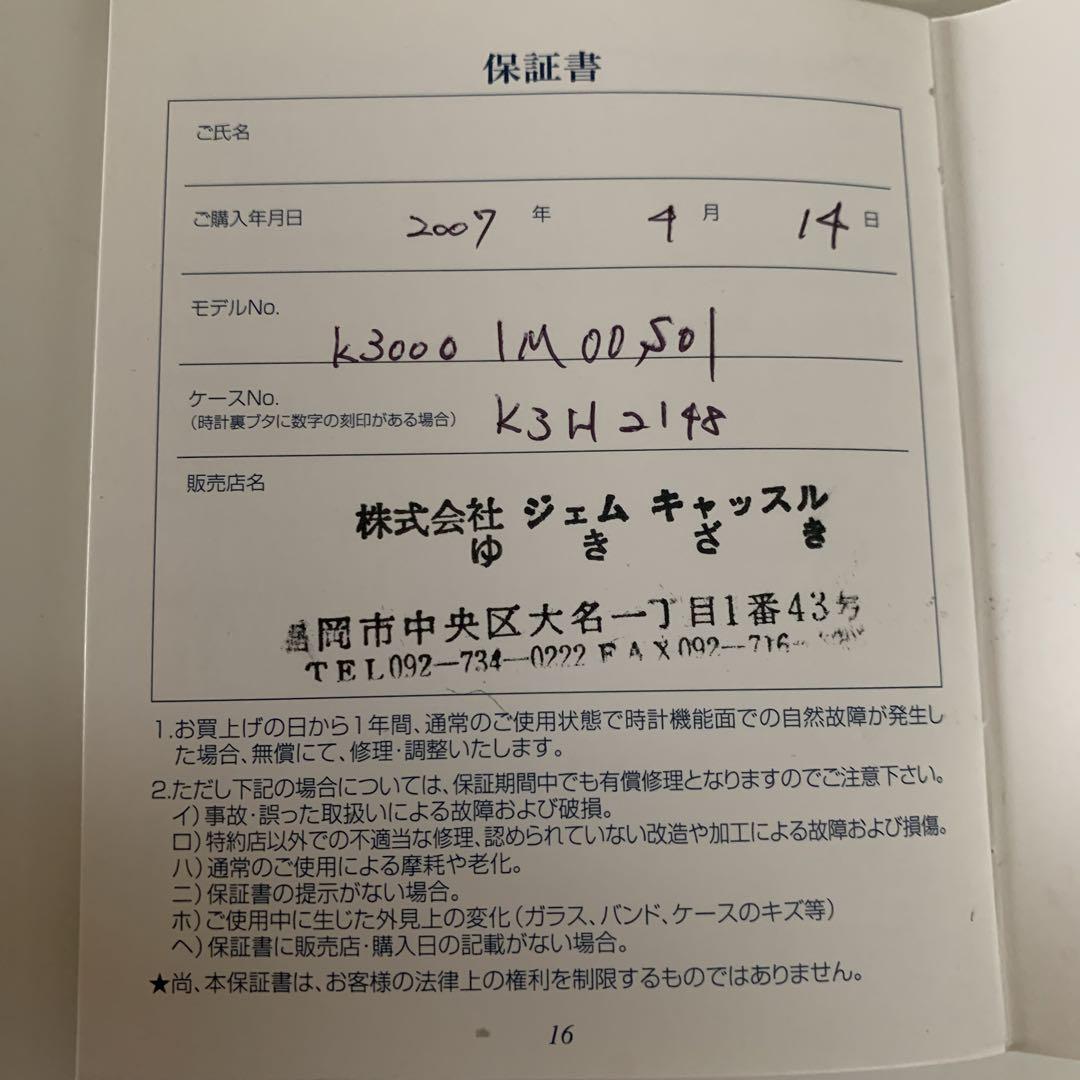 保証書
ご氏名
ご購入年月日 2007 年 4 月 14 日
モデルNo.
K3000 1M 00,S01
ケースNo.
(時計裏ブタに数字の刻印がある場合) K3H2148
販売店名
株式会社 ジェム キャッスル
ゆきざき
岡市中央区大名一丁目1番43号
TEL092-734-0222 FAX092-716-
1.お買上げの日から1年間、通常のご使用状態で時計機能面での自然故障が発生し
た場合、無償にて、修理・調整いたします。
2.ただし下記の場合については、保証期間中でも有償修理となりますのでご注意下さい。
イ)事故・誤った取扱いによる故障および破損。
ロ)特約店以外での不適当な修理、認められていない改造や加工による故障および損傷。
ハ)通常のご使用による摩耗や老化。
ニ)保証書の提示がない場合。
ホ)ご使用中に生じた外見上の変化(ガラス、バンド、ケースのキズ等)
ヘ)保証書に販売店・購入日の記載がない場合。
★尚、本保証書は、お客様の法律上の権利を制限するものではありません。
16